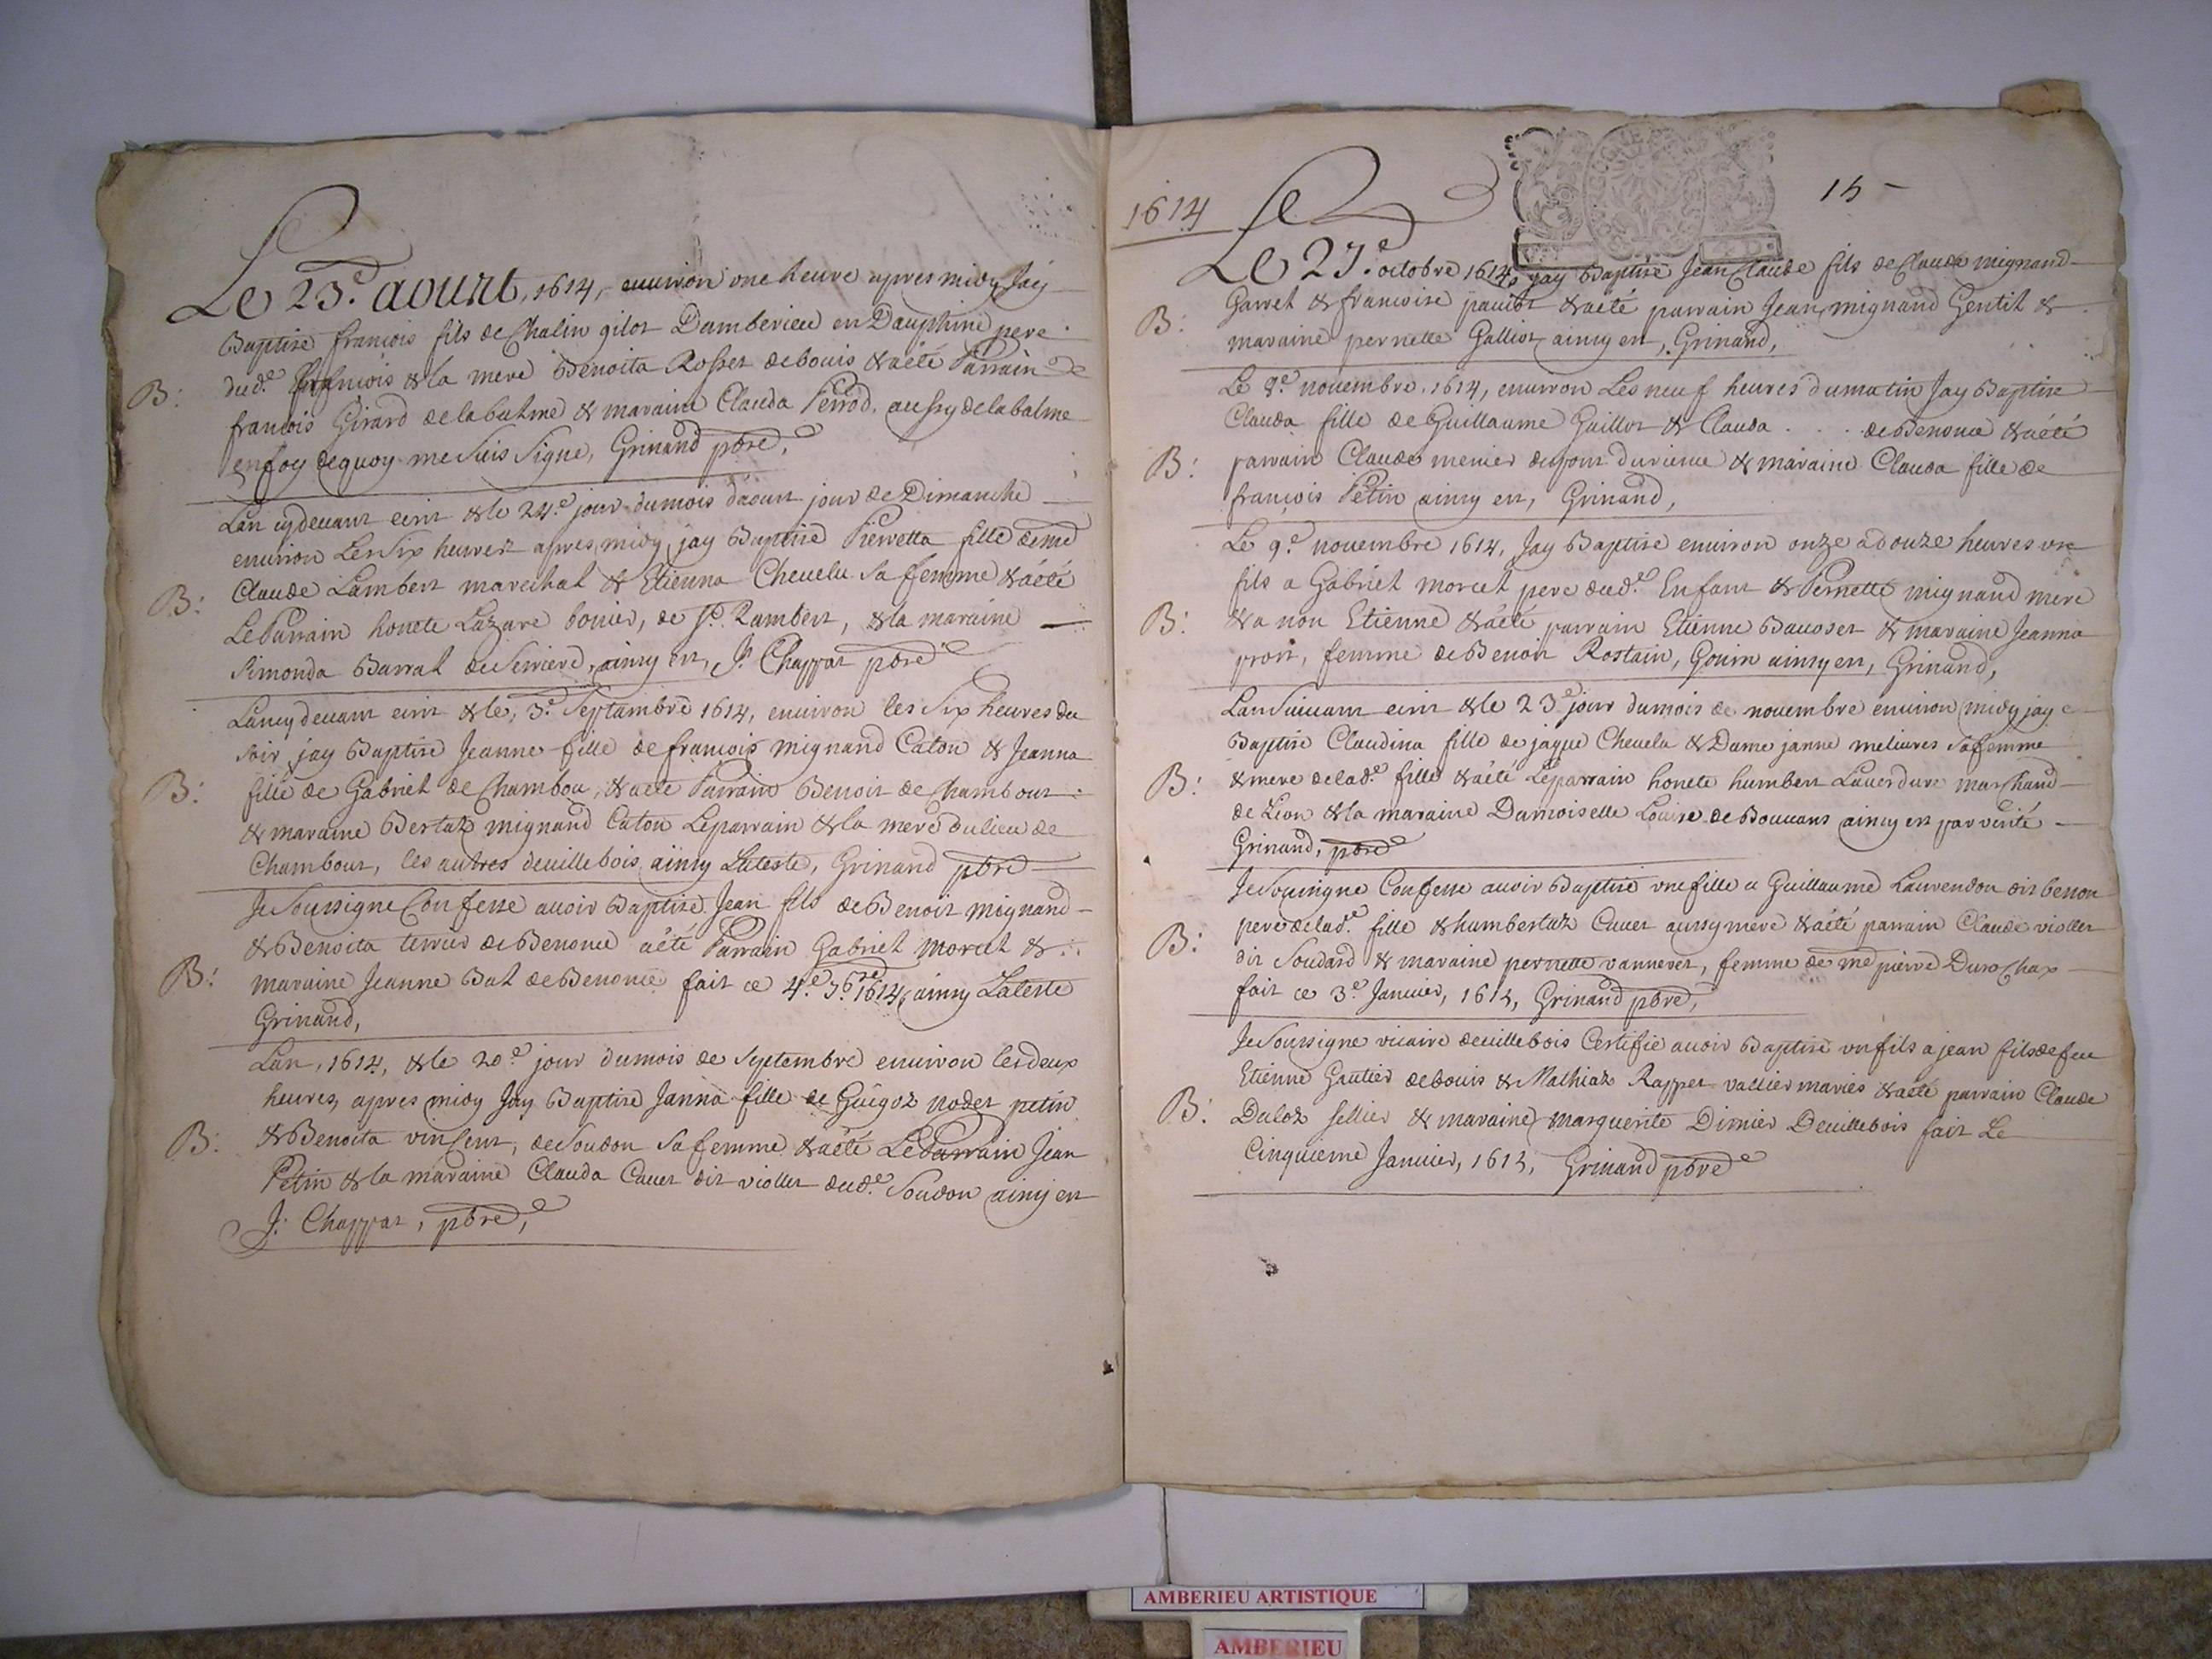 Le 23.e aoust, 1614, enuiron une heure apres midy Jay
Baptise francois fils de Chalin gilot Damberieu en Dauphiné pere
dud.e francois & la mere Benoita Rosset de bouis & a été Parrain
francois Girard de la balme & maraine Clauda Perrod, aussy de la balme
en foy de quoy me suis signe, Grinand pbre,
B:
Lan cy deuant ecrit & le 24.e jour du mois daoust jour de Dimanche
enuiron Les six heures apres midy jay Baptisé Pierretta fille de me
Claude Lambert marechal & Etienna Cheuelu sa femme & a été
Le Parrain honete Lazare bonier, de St. Rambert, & la maraine
Simonda Barrat de Serriere, ainsy est, J. Chappat pbre
B:
Lan cy deuant ecrit & le, 3.e Septambre 1614, enuiron les six heures du
soir jay Baptise Jeanne fille de francois mignand Caton & Jeanna
fille de Gabriel de Chambou, & a ete Parrain Benoit de Chambout
& maraine Bertaz mignand Caton Le parrain & la mere du lieu de
Chambout, les autres de uillebois ainsy Lateste, Grinand pbre
B:
Je Soussigne Confesse auoir Baptisé Jean fils de Benoit mignand
& Benoita terrier de Benonce a été Parrain Gabriel morcel &
maraine Jeanne Bal de Benonce fait ce 4.e 7bre 1614, ainsy Lateste
Grinand,
B:
Lan, 1614, & le 20.e jour du mois de Septembre enuiron les deux
heures, apres midy Jay Baptise Janna fille de Guigoz nodet petin
& Benoita vincent, de Soudon sa femme & a été Le Parrain Jean
Petin & la maraine Clauda Cauet dit viollet dud.e Soudon ainsy est
J. Chappat, pbre,
B:
1614
15
Le 27.e octobre 1614, jay Baptisé Jean Claude fils de Claude mignand
Garret & francoise paulot & a eté parrain Jean mignand Gentil &
maraine pernette Galliot ainsy est, Grinand,
B:
Le 8.e nouembre, 1614, enuiron Les neuf heures du matin Jay Baptise
Clauda fille de Guillaume Guillot & Clauda . . . de Benonce & a été
parrain Claude menier & maraine Clauda fille de
françois Petin ainsy est, Grinand,
B:
Le 9.e nouembre 1614, Jay Baptise enuiron onze a douze heures vn
fils a Gabriel morcel pere dud.e Enfant & Pernette mignand mere
& a nom Etienne & a été parrain Etienne Baccoset & maraine Jeanna
prost, femme de Benoit Rostain, Gouin ainsy est, Grinand,
B:
Lan Suiuant ecrit & le 23.e jour du mois de nouembre enuiron midy jay
Baptise Claudina fille de jaque Cheuelu & Dame janne melieures sa femme
& mere de lad.e fille & a été Le parrain honete humbert Lauerdure marchand
de Lion & la maraine Damoiselle Louise de Bouuans ainsy est par verité
Grinand, pbre
B:
Je Soussigne Confesse auoir Baptisé vne fille a Guillaume Laurendon dit benon
pere de lad.e fille & humbertaz Cauet aussy mere & a été parrain Claude viollet
dit Soudard & maraine pernette vanneret, femme de me pierre Durochax
fait ce 3.e Januier, 1615, Grinand pbre,
B:
Je Soussigne vicaire de uillebois Certifie auoir Baptisé vn fils a jean fils de feu
Etienne Gautier de bouis & Mathiaz Rappet vallier mariés & a été parrain Claude
Duloz sellier & maraine marguerite Dimier De uillebois fait Le
Cinquieme Januier, 1615, Grinand pbre
B:
AMBERIEU ARTISTIQUE
AMBERIEU